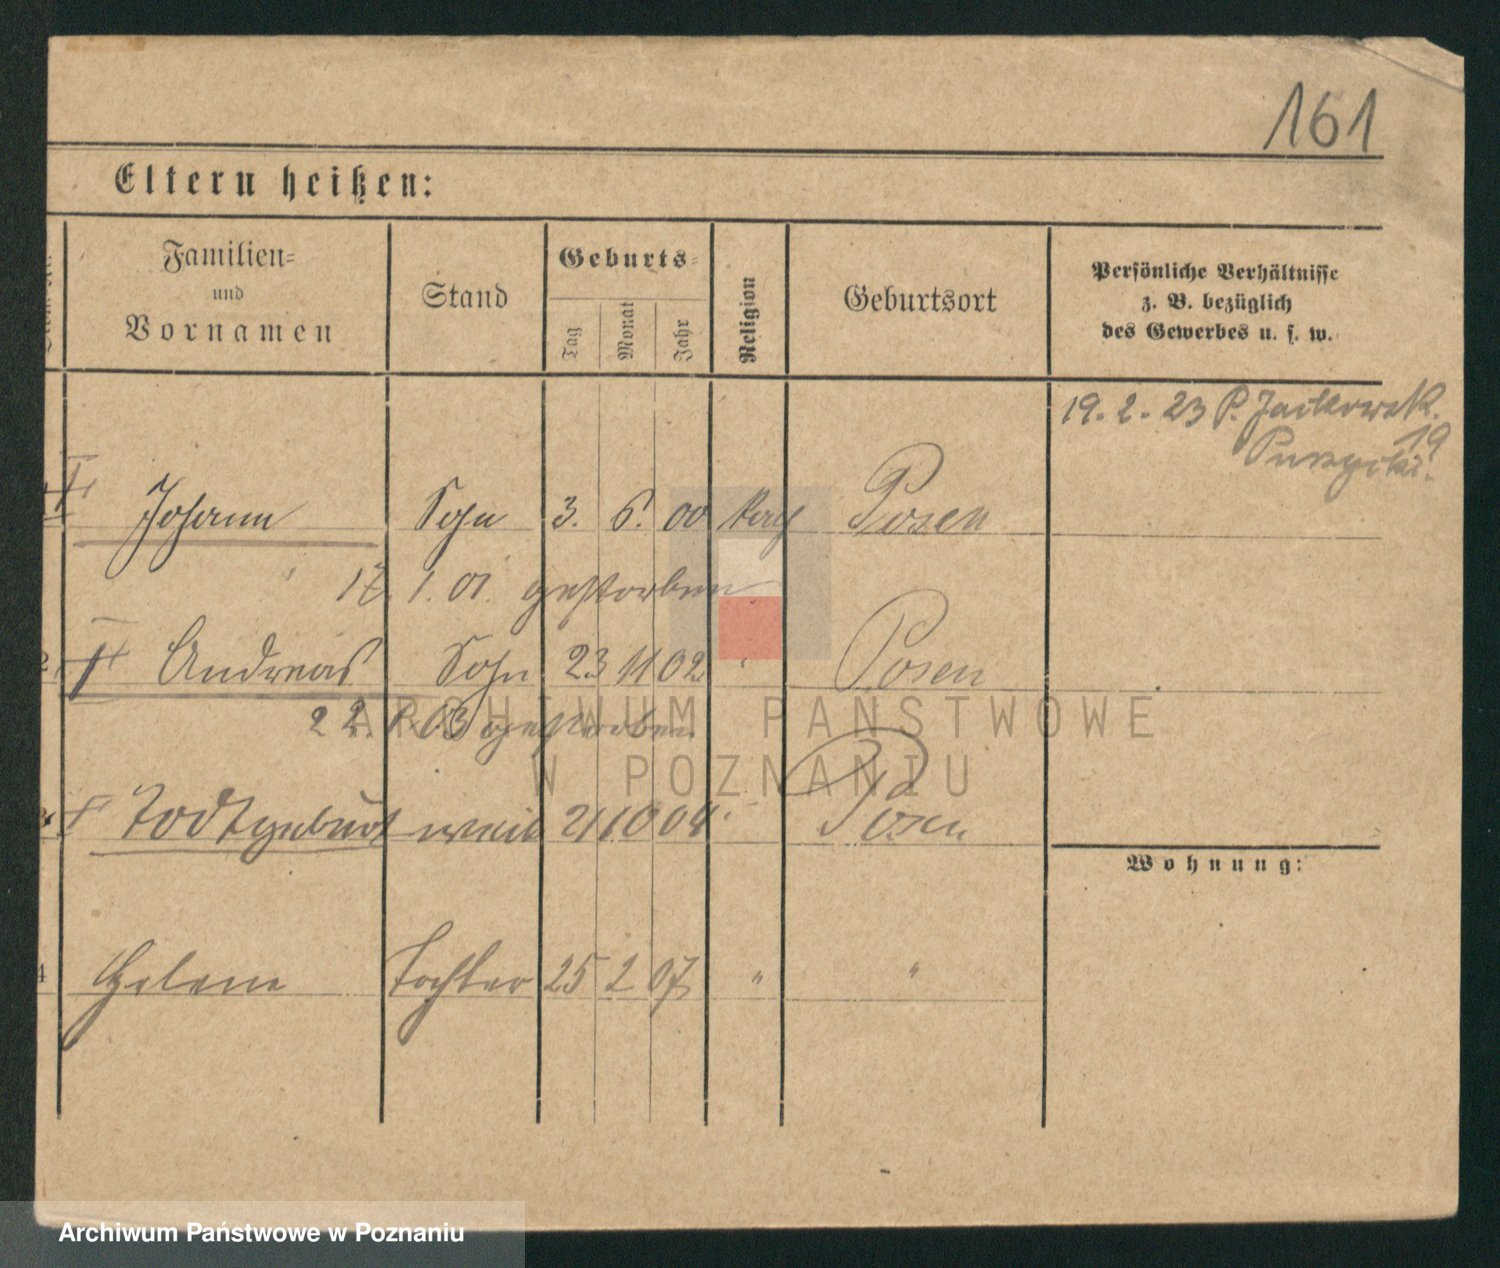 161
Eltern heißen:
Familien=
und
Vornamen
Stand
Geburts=
Tag
Monat
Jahr
Religion
Geburtsort
Persönliche Verhältnisse
z. B. bezüglich
des Gewerbes u. s. w.
19. 2. 23 P.
19
Johann Sohn 3. 6. 00 kath Posen
17. 1. 01. gestorben
2 Andreas Sohn 23 11 02 " Posen
22. 1. 03 gestorben
Todtgeburt weib 21 10 04 " Posen
Wohnung:
4 Helene Tochter 25 2 07 " "
ARCHIWUM PAŃSTWOWE
W POZNANIU
Archiwum Państwowe w Poznaniu